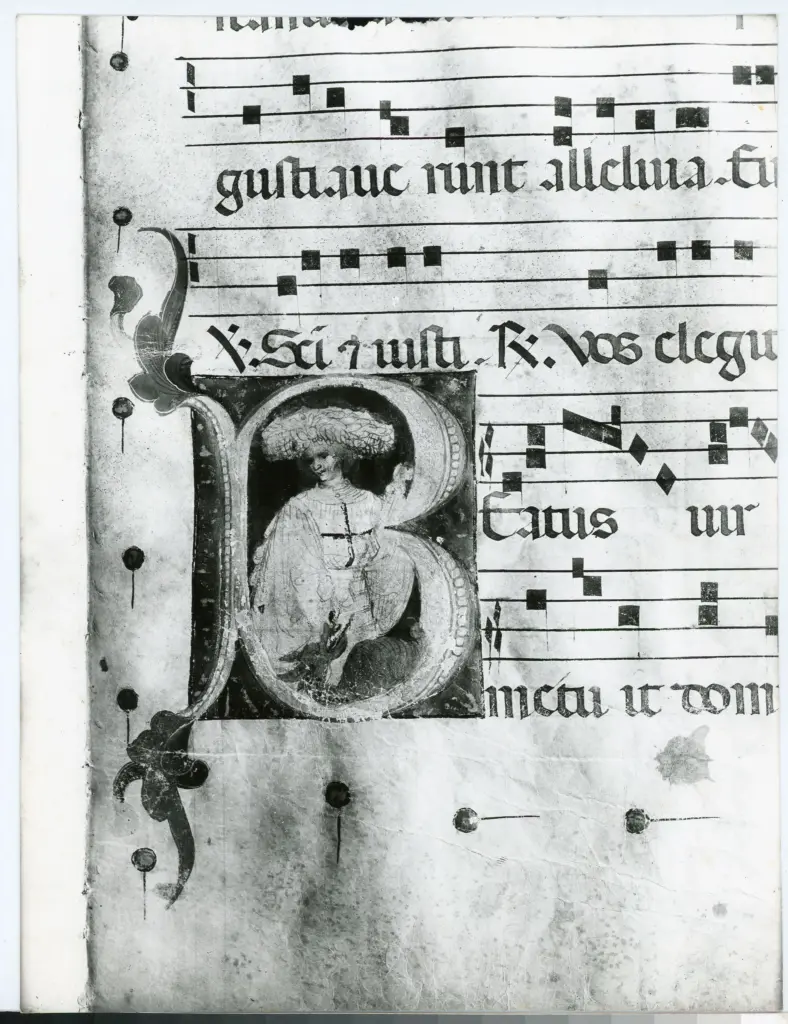 gustiaue runt alleluia. Eu
℣. Sci ⁊ iusti. ℟. Vos elegi
BEatus uir
metu it dom